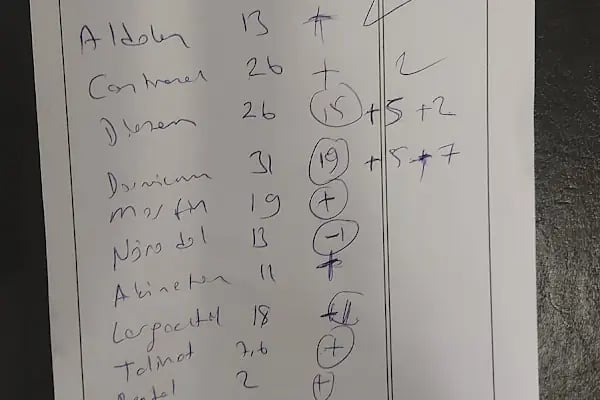 Aldolan 13 +
Contramal 26 + 2
Diazem 26 15 +5 +2
Dormicum 31 19 +5 +7
Morfin 19 +
Norodol 13 -1
Akineton 11 +
Largactil 18
Talinat 7,6 +
2 +